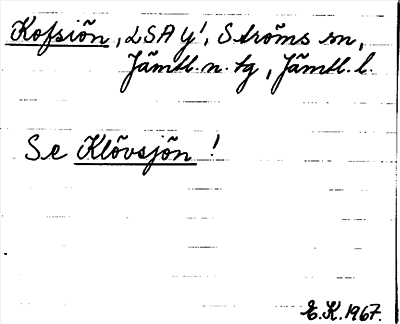 Kofsiön, LSA y!, Ströms sn,
Jämtl. n. tg, Jämtl. l.
Se Klövsjön!
E.K. 1967.